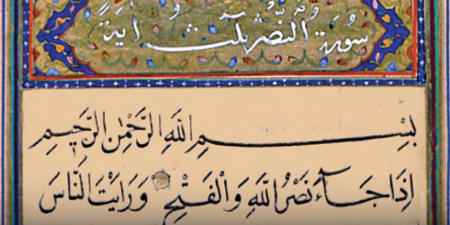 سُورَةُ النَّصْرِ ثَلٰثُ اٰيَةً
بِسْمِ اللّٰهِ الرَّحْمٰنِ الرَّحِيمِ
اِذَا جَآءَ نَصْرُ اللّٰهِ وَالْفَتْحُ وَرَاَيْتَ النَّاسَ